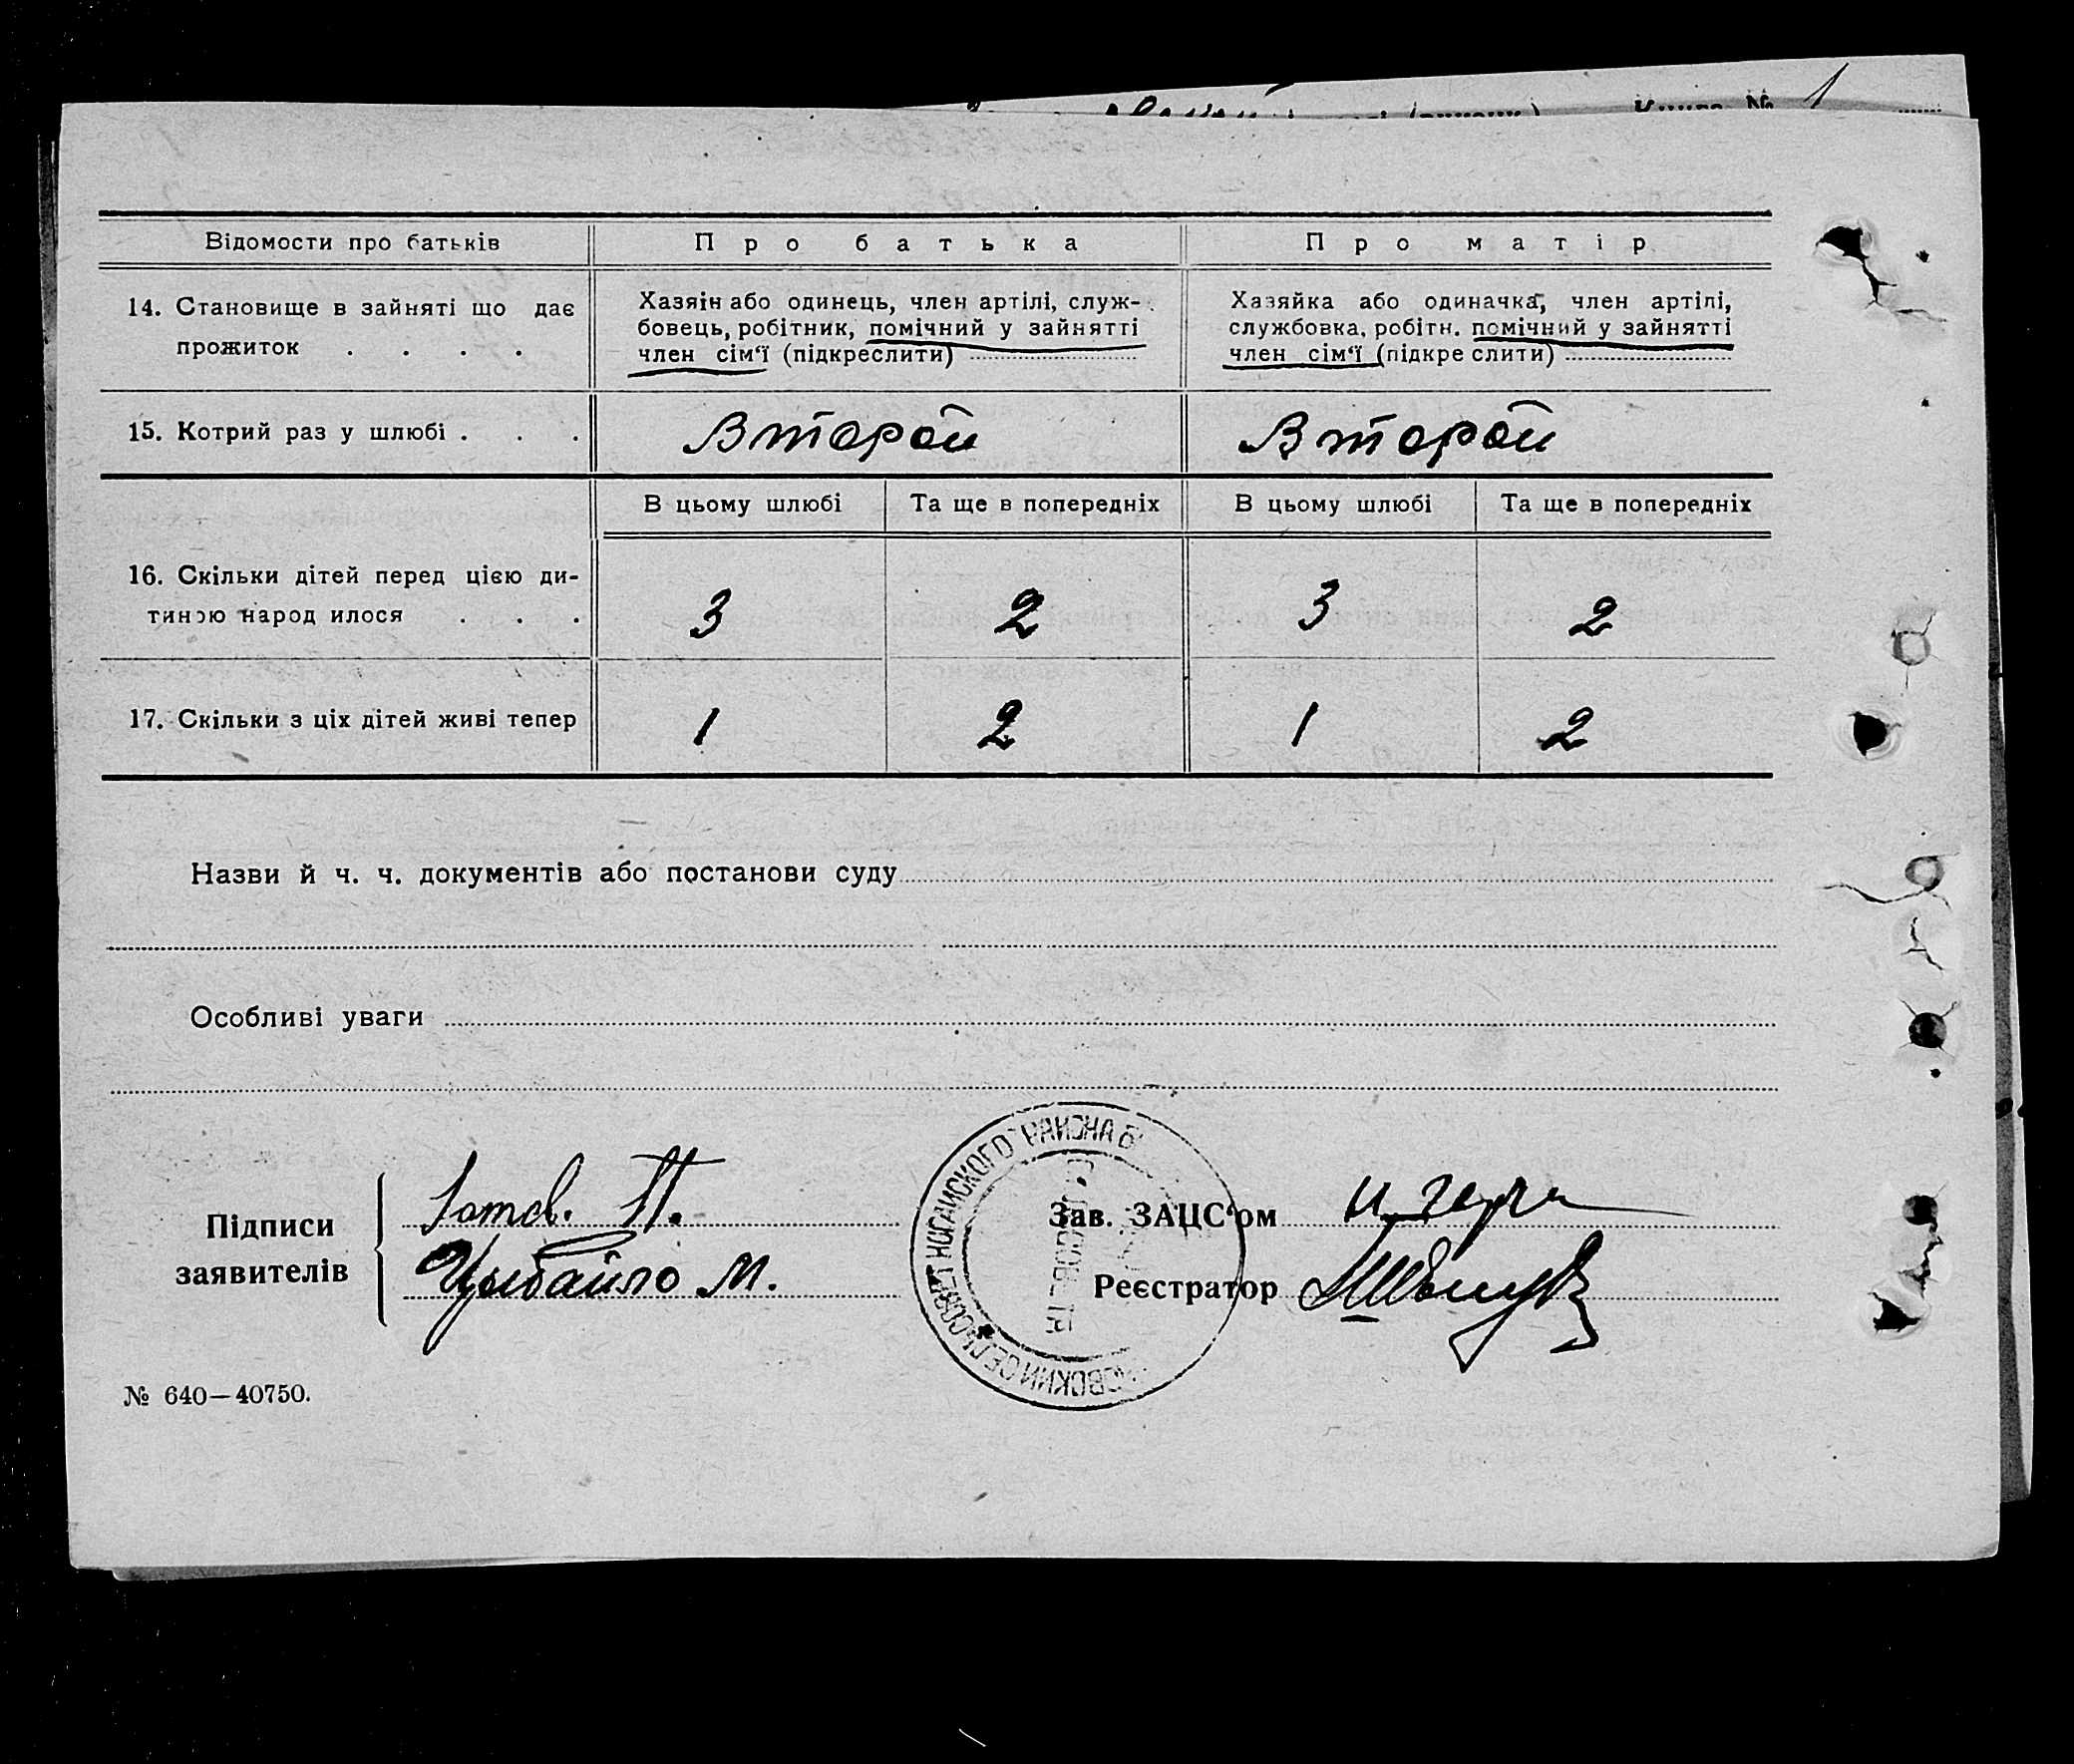 Книга № 1
Відомости про батьків Про батька Про матір
14. Становище в зайняті що дає
прожиток . . . .
Хазяін або одинець, член артілі, служ-
бовець, робітник, помічний у зайнятті
член сім'ї (підкреслити)
Хазяйка або одиначка, член артілі,
службовка, робітн. помічний у зайнятті
член сім'ї (підкре слити)
15. Котрий раз у шлюбі . . . Второй Второй
В цьому шлюбі Та ще в попередніх В цьому шлюбі Та ще в попередніх
16. Скільки дітей перед цією ди-
тиною народ илося . . . 3 2 3 2
17. Скільки з ціх дітей живі тепер 1 2 1 2
Назви й ч. ч. документів або постанови суду
Особливі уваги
Підписи
заявителів
П.
Цыбайло М.
НОГАЙСКОГО РАЙОНА
СЕЛЬСОВЕТ
Зав. ЗАЦС'ом
Реєстратор
№ 640—40750.